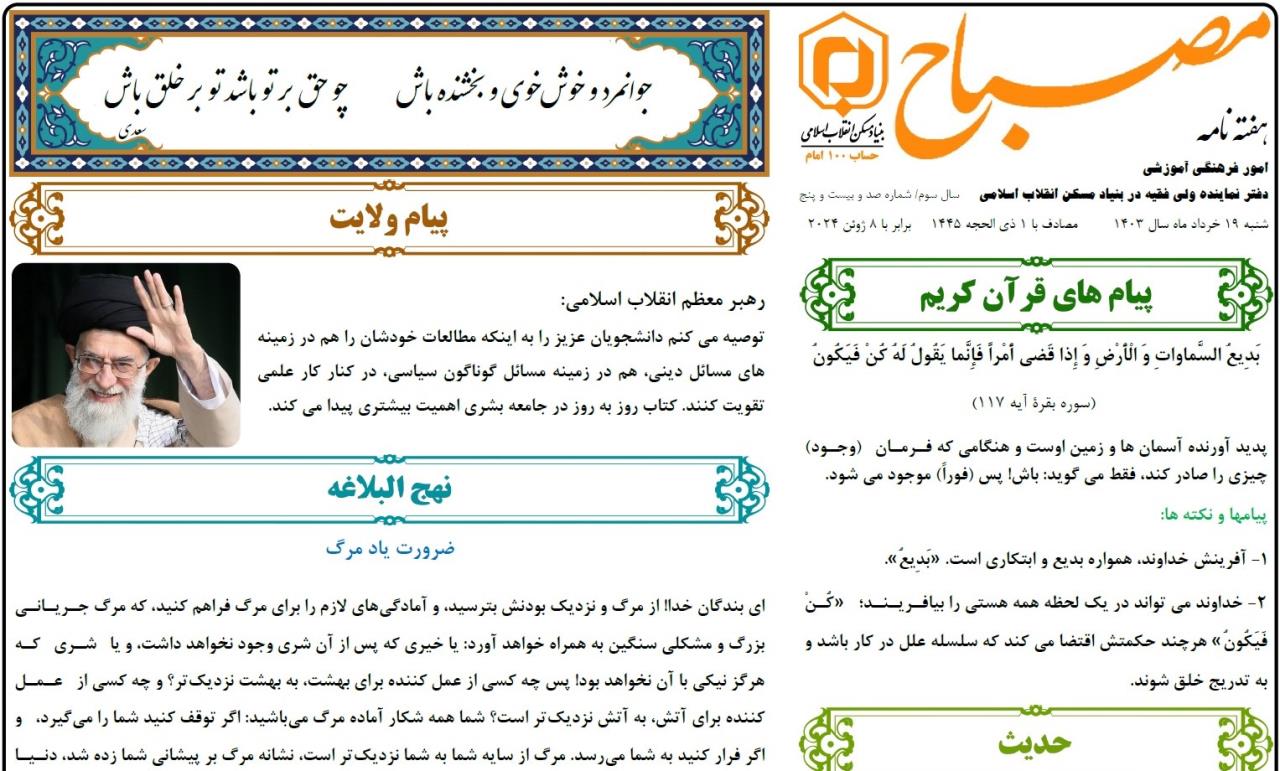 مصباح
هفته نامه
بنیاد مسکن انقلاب اسلامی
حساب ۱۰۰ امام
امور فرهنگی آموزشی
دفتر نماینده ولی فقیه در بنیاد مسکن انقلاب اسلامی سال سوم/ شماره صد و بیست و پنج
شنبه ۱۹ خرداد ماه سال ۱۴۰۳ مصادف با ۱ ذی الحجه ۱۴۴۵ برابر با ۸ ژوئن ۲۰۲۴
پیام های قرآن کریم
بَدِيعُ السَّماواتِ وَ الْأَرْضِ وَ إِذا قَضى أَمْراً فَإِنَّما يَقُولُ لَهُ كُنْ فَيَكُونُ
(سوره بقرة آیه ۱۱۷)
پدید آورنده آسمان ها و زمین اوست و هنگامی که فرمان (وجود)
چیزی را صادر کند، فقط می گوید: باش! پس (فوراً) موجود می شود.
پیامها و نکته ها:
۱- آفرینش خداوند، همواره بدیع و ابتکاری است. «بَدِيعُ».
۲- خداوند می تواند در یک لحظه همه هستی را بیافریند؛ «كُنْ
فَيَكُونُ» هرچند حکمتش اقتضا می کند که سلسله علل در کار باشد و
به تدریج خلق شوند.
حدیث
جوانمرد و خوش‌خوی و بخشنده باش چو حق بر تو باشد تو بر خلق باش
سعدی
پیام ولایت
رهبر معظم انقلاب اسلامی:
توصیه می کنم دانشجویان عزیز را به اینکه مطالعات خودشان را هم در زمینه
های مسائل دینی، هم در زمینه مسائل گوناگون سیاسی، در کنار کار علمی
تقویت کنند. کتاب روز به روز در جامعه بشری اهمیت بیشتری پیدا می کند.
نهج البلاغه
ضرورت یاد مرگ
ای بندگان خدا! از مرگ و نزدیک بودنش بترسید، و آمادگی‌های لازم را برای مرگ فراهم کنید، که مرگ جریانی
بزرگ و مشکلی سنگین به همراه خواهد آورد: یا خیری که پس از آن شری وجود نخواهد داشت، و یا شری که
هرگز نیکی با آن نخواهد بود! پس چه کسی از عمل کننده برای بهشت، به بهشت نزدیک‌تر؟ و چه کسی از عمل
کننده برای آتش، به آتش نزدیک‌تر است؟ شما همه شکار آماده مرگ می‌باشید: اگر توقف کنید شما را می‌گیرد، و
اگر فرار کنید به شما می‌رسد. مرگ از سایه شما به شما نزدیک‌تر است، نشانه مرگ بر پیشانی شما زده شد، دنیا